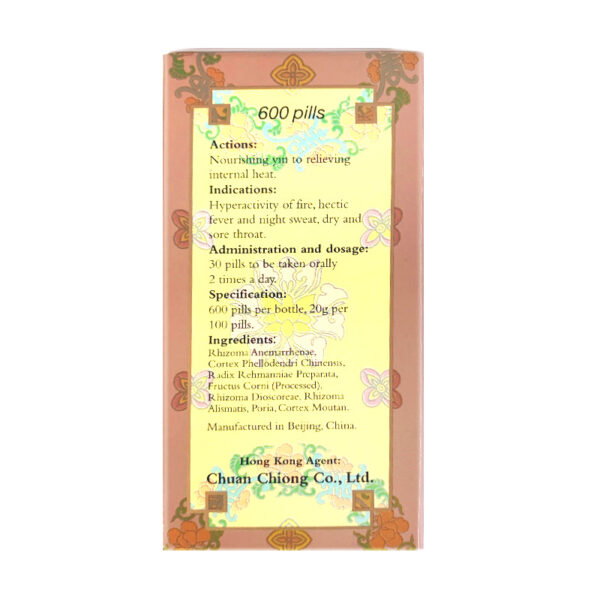 600 pills
Actions:
Nourishing yin to relieving
internal heat.
Indications:
Hyperactivity of fire, hectic
fever and night sweat, dry and
sore throat.
Administration and dosage:
30 pills to be taken orally
2 times a day.
Specification:
600 pills per bottle, 20g per
100 pills.
Ingredients:
Rhizoma Anemarrhenae,
Cortex Phellodendri Chinensis,
Radix Rehmanniae Preparata,
Fructus Corni (Processed),
Rhizoma Dioscoreae, Rhizoma
Alismatis, Poria, Cortex Moutan.
Manufactured in Beijing, China.
Hong Kong Agent:
Chuan Chiong Co., Ltd.